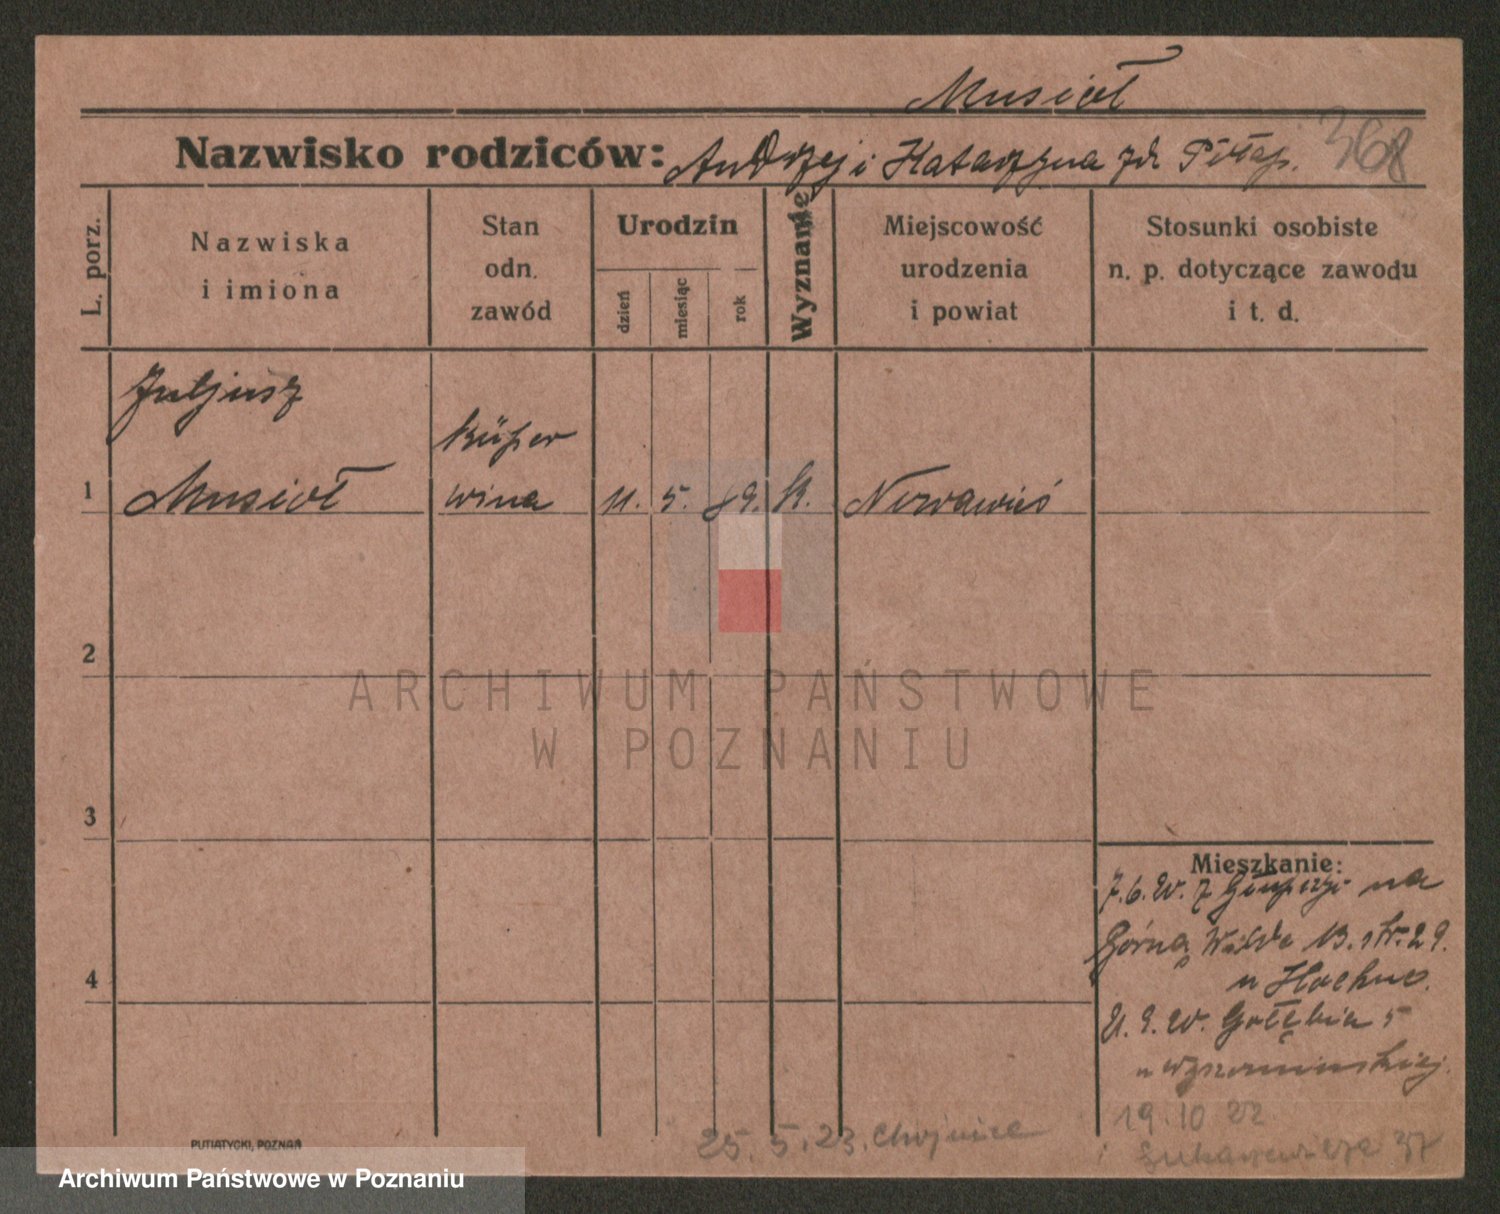 Musioł
Nazwisko rodziców: Andrzej i Katarzyna zd. 368
L. porz.
Nazwiska
i imiona
Stan
odn.
zawód
Urodzin
dzień
miesiąc
rok
Wyznanie
Miejscowość
urodzenia
i powiat
Stosunki osobiste
n. p. dotyczące zawodu
i t. d.
Juljusz
Küper
1 Musioł wina 11. 5. 89. K. Nowawieś
2
3
4
Mieszkanie:
7.6.20. z na
Górną Wildę 13. str. 29.
u
21. 9. 20. Gołębia 5
u
19. 10 22
Łukaszewicza 37
25. 5. 23. Chojnice
PUTIATYCKI, POZNAŃ
ARCHIWUM PAŃSTWOWE
W POZNANIU
Archiwum Państwowe w Poznaniu